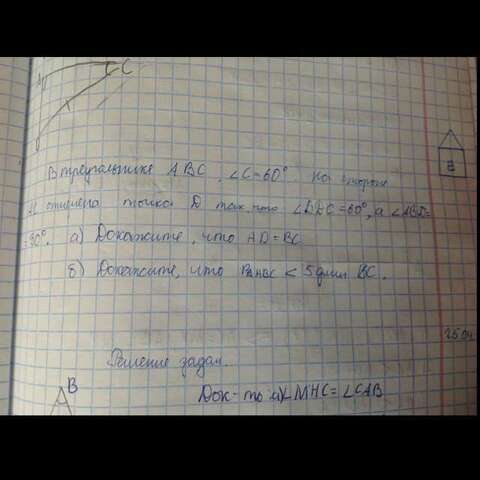 C
В треугольнике ABC, ∠C=60°. На стороне
AC отмечена точка D так, что ∠BDC=60°, а ∠ABD=
=30°. а) Докажите, что AD=BC
б) Докажите, что P△ABC < 5 длин BC.
25.04
Решение задач.
B
Док-то: а) ∠MHC=∠CAB